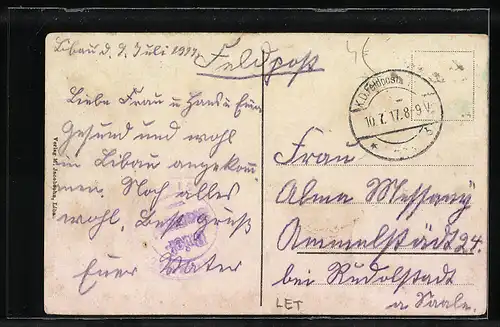 Libau d. 9. Juli 1917
Feldpost
Liebe Frau u Hans u Erna
Gesund und wohl
in Libau angekom
men. Noch alles
wohl. Best. Gruß
Euer Vater
K.D. Feldpost
10.7.17. 8-9 V.
Frau
Alma Messang
Ammelstädt 24.
bei Rudolstadt
a Saale.
LET